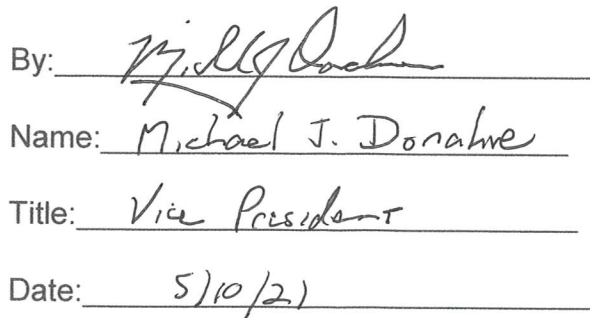 By:
Name: Michael J. Donahue
Title: Vice President
Date: 5/10/21